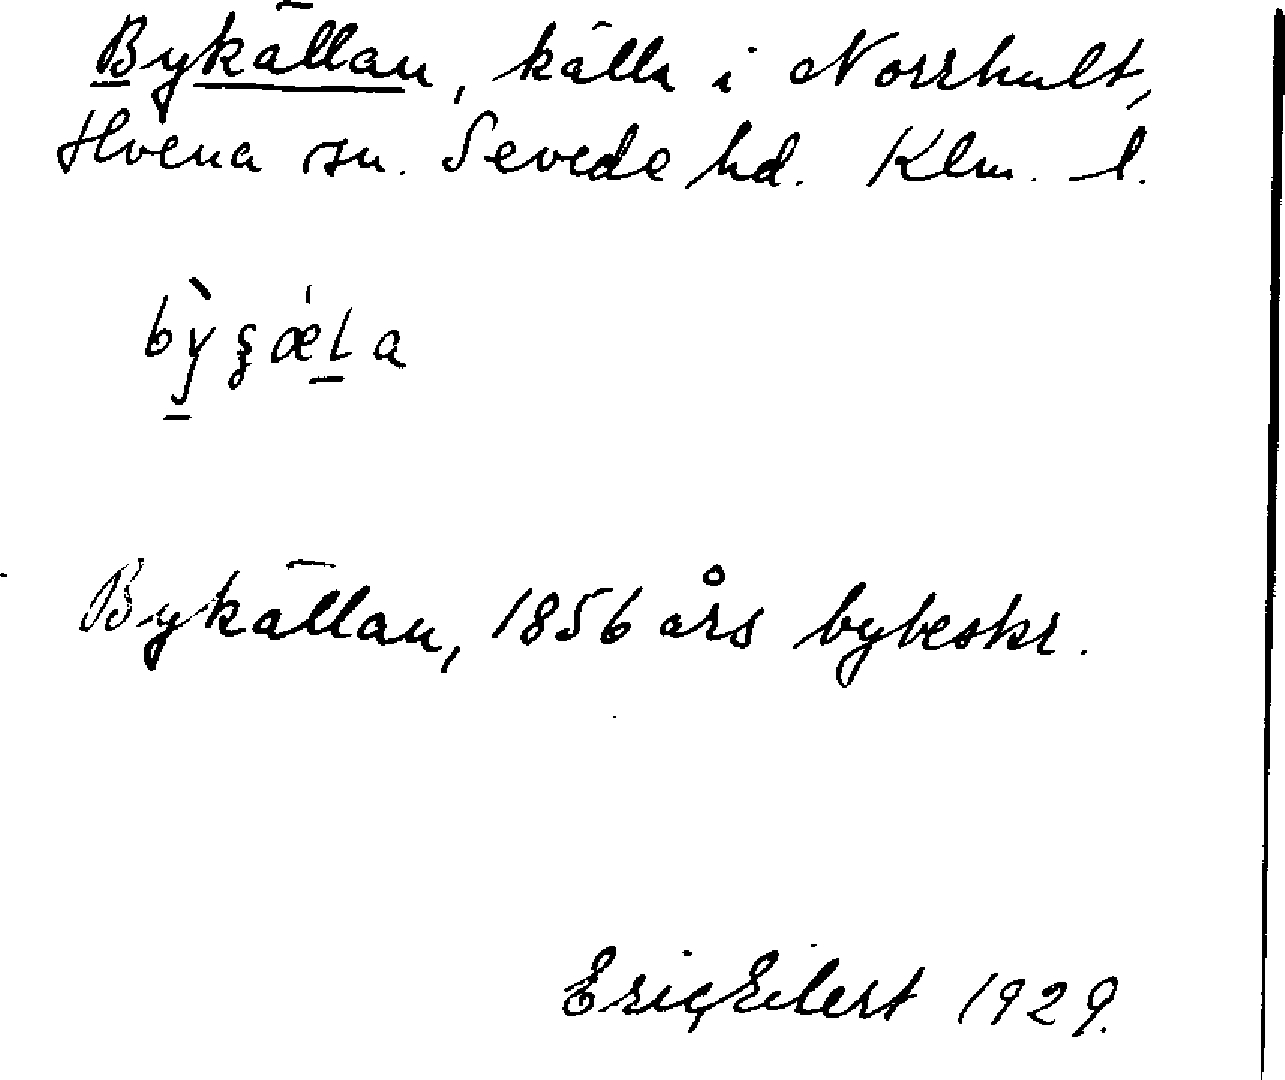 Bykällan, källa i Norrhult,
Hvena sn. Sevede hd. Klm. l.
bỳʂǽla
Bykällan, 1856 års bybeskr.
Eric Eilert 1929.